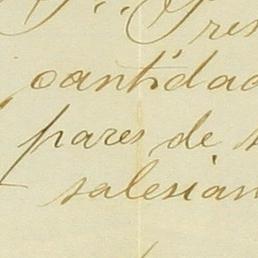 cantidad
pares de
salesian